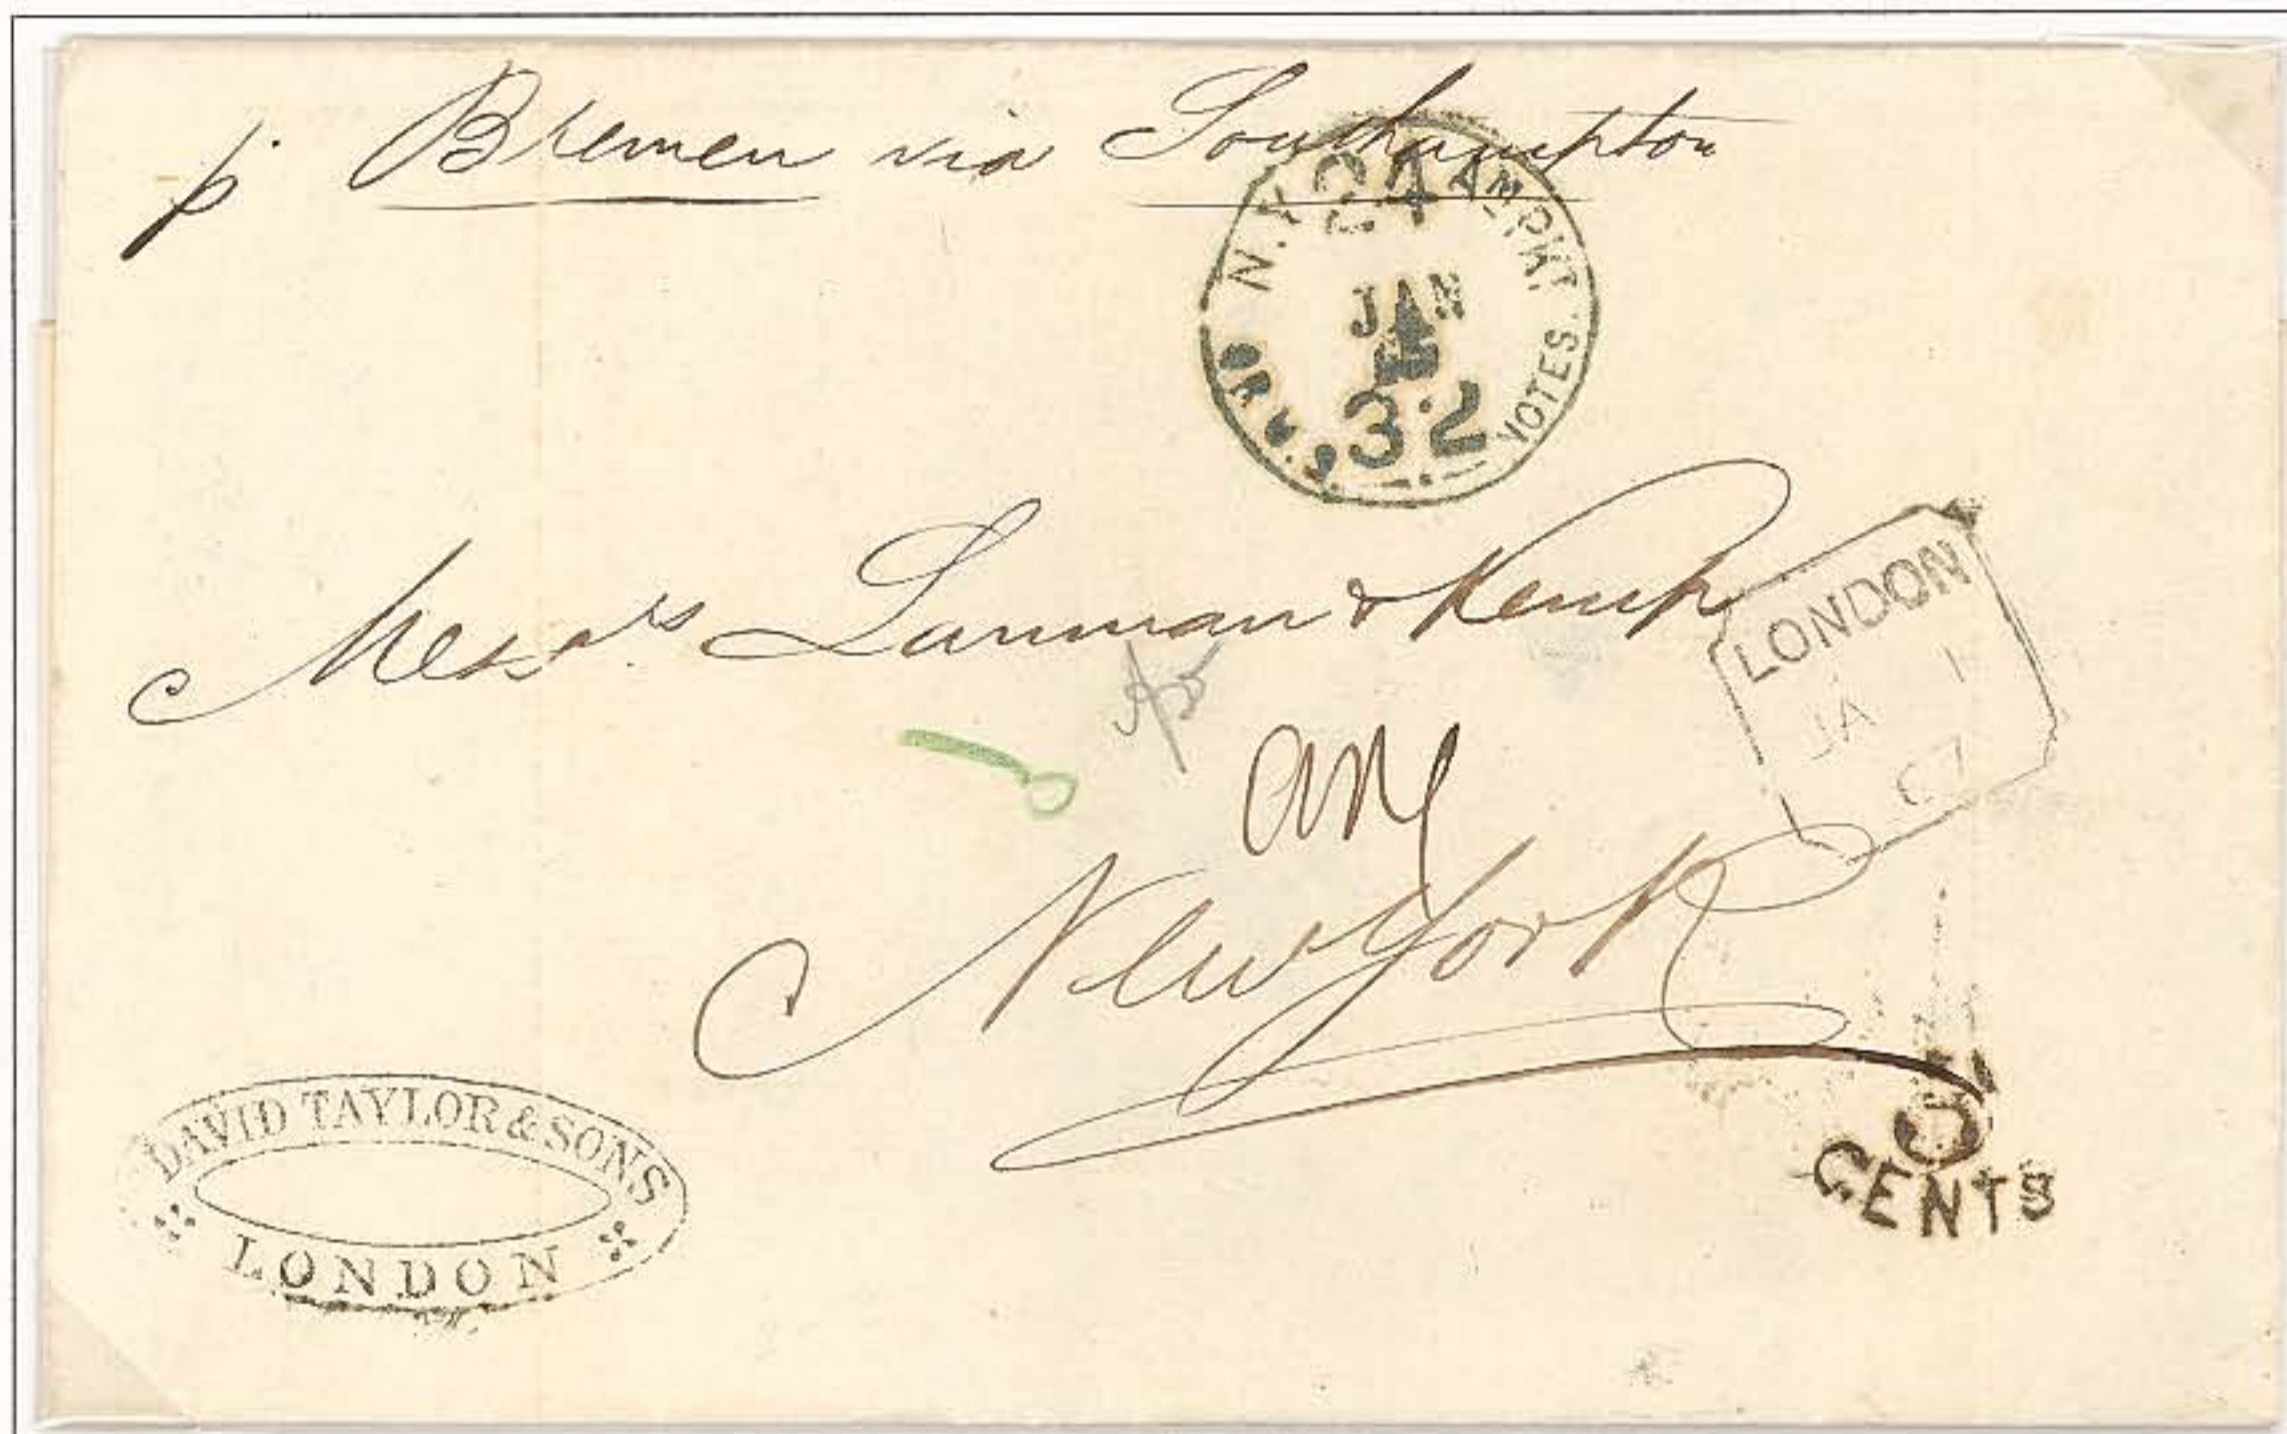 p. Bremen via Southampton
N.Y. 24 AM. PKT.
JAN
32
NOTES.
Messrs Lanman & Kemp
LONDON
JA 1
67
New York
DAVID TAYLOR & SONS
LONDON
3
CENTS